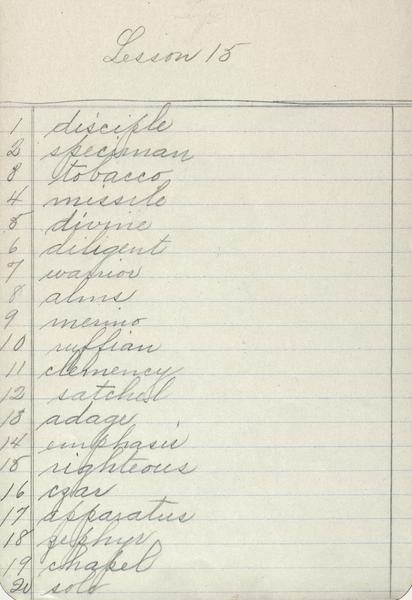 Lesson 15
1 disciple
2 speciman
3 tobacco
4 missile
5 divine
6 diligent
7 warrior
8 alms
9 merino
10 ruffian
11 clemency
12 satchel
13 adage
14 emphasis
15 righteous
16 czar
17 apparatus
18 zephyr
19 chapel
20 solo